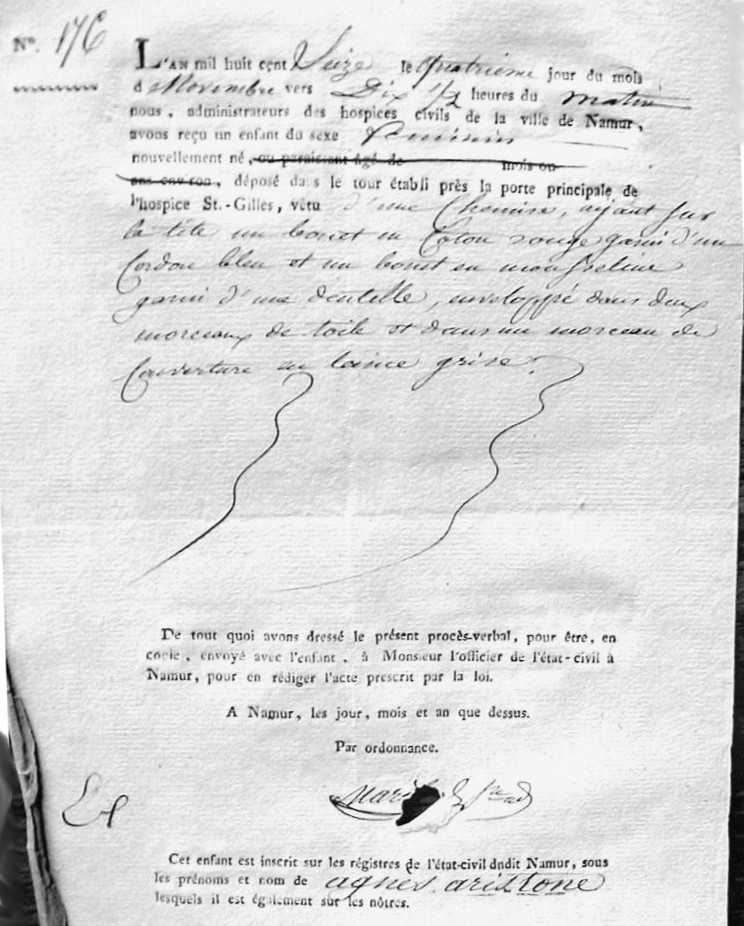 N°. 176
L'AN mil huit cent Seize le quatrieme jour du mois
d Novembre vers Dix 1/2 heures du matin
nous, administrateurs des hospices civils de la ville de Namur,
avons reçu un enfant du sexe feminin
nouvellement né, ou paraissant âgé de mois ou
ans environ, déposé dans le tour établi près la porte principale de
l'hospice St.-Gilles, vêtu d'une Chemise, ayant sur
la tête un bonet en Coton rouge garni d'un
Cordon bleu et un bonet en mousseline
garni d'une dentelle, enveloppé dans deux
morceaux de toile et dans un morceau de
Couverture en laine grise.
De tout quoi avons dressé le présent procès-verbal, pour être, en
copie, envoyé avec l'enfant, à Monsieur l'officier de l'état-civil à
Namur, pour en rédiger l'acte prescrit par la loi.
A Namur, les jour, mois et an que dessus.
Par ordonnance.
Cet enfant est inscrit sur les régistres de l'état-civil dudit Namur, sous
les prénoms et nom de agnes aristone
lesquels il est également sur les nôtres.